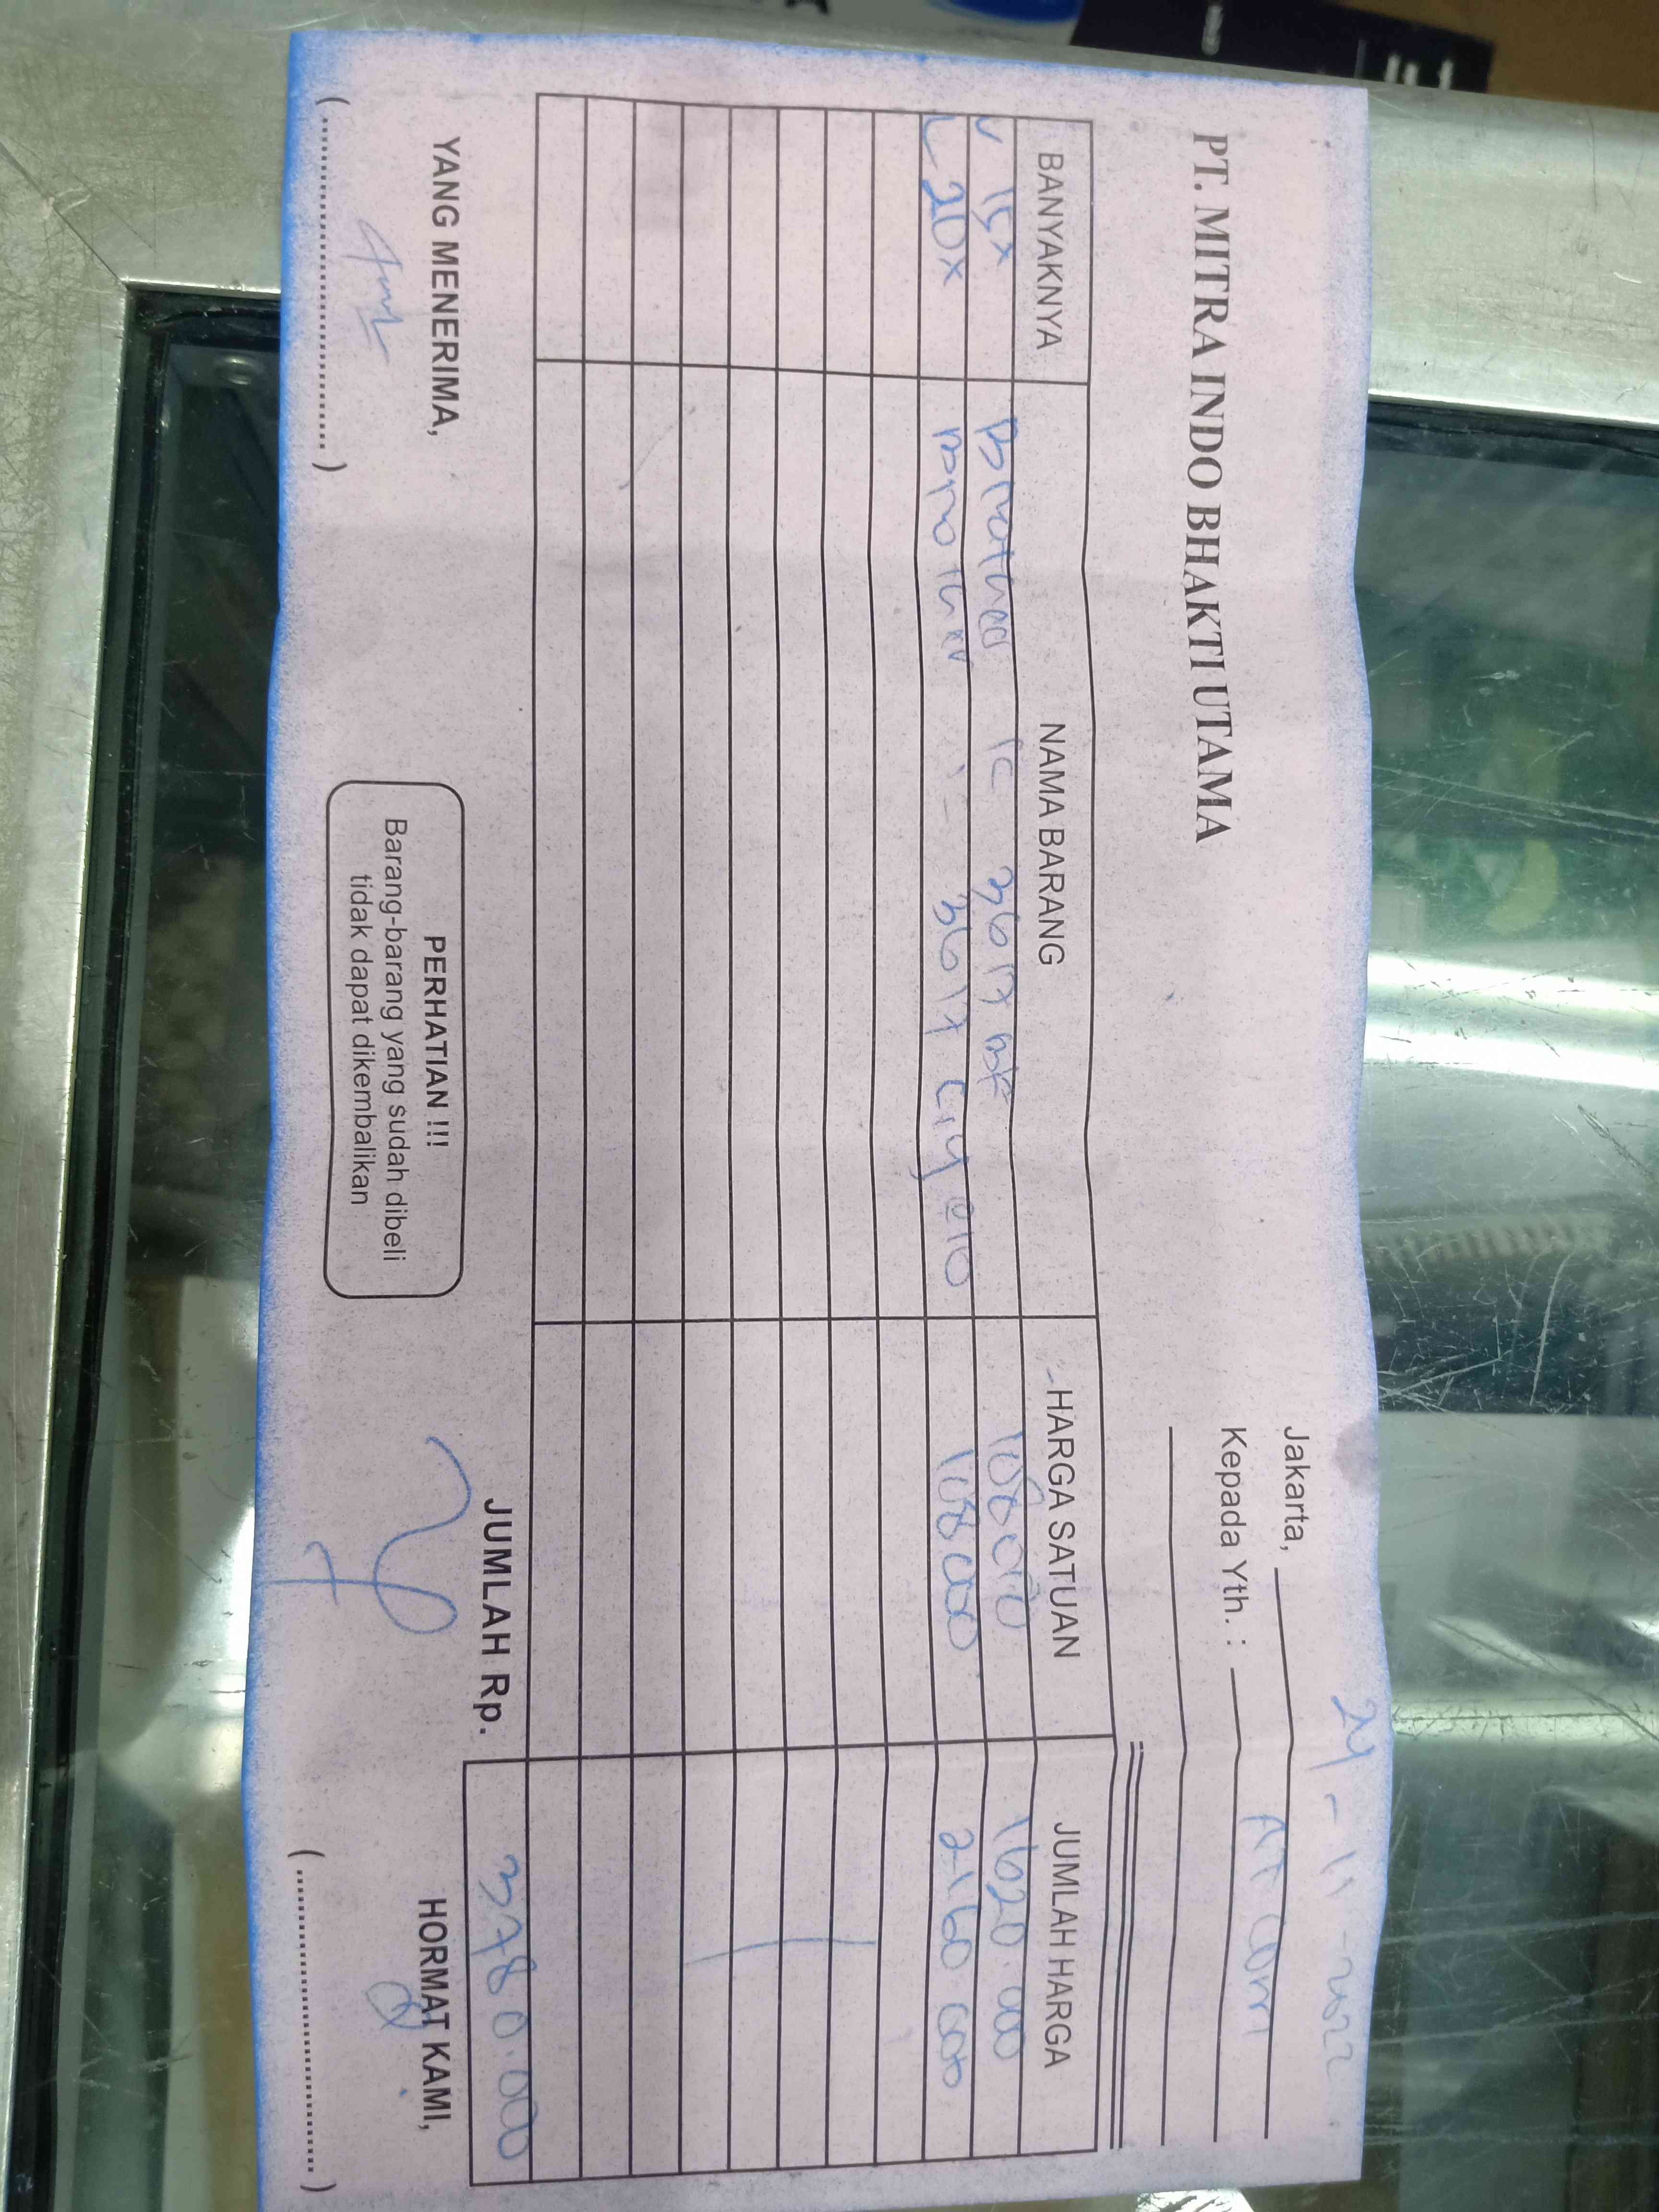 PT. MITRA INDO BHAKTI UTAMA
Jakarta, 24-11-2022
Kepada Yth. : At com
BANYAKNYA NAMA BARANG HARGA SATUAN JUMLAH HARGA
15x Brother IC 3617 BK 108000 1620.000
20x Brother 3617 C,y @10 108000 2160.000
JUMLAH Rp. 3780.000
YANG MENERIMA,
PERHATIAN !!!
Barang-barang yang sudah dibeli
tidak dapat dikembalikan
HORMAT KAMI,